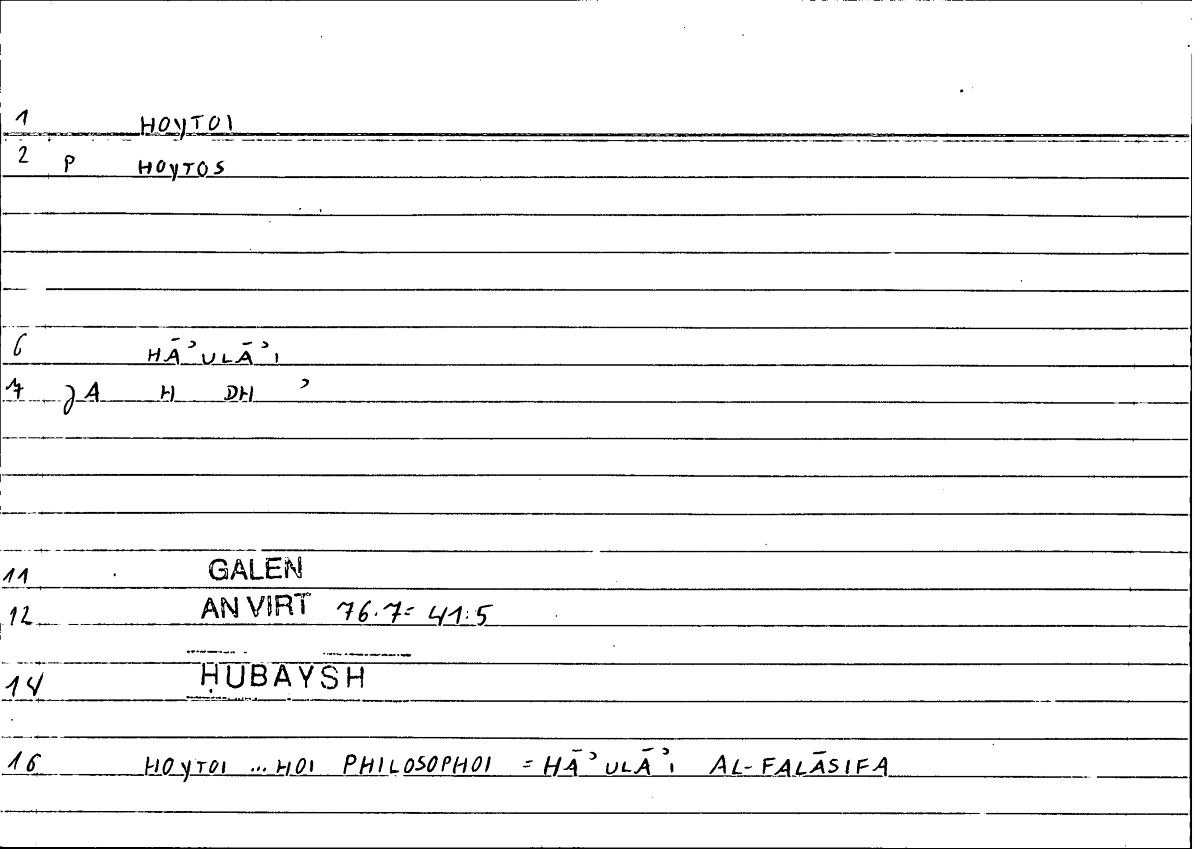 1 HOYTOI
2 P HOYTOS
6 HĀʾULĀʾI
7 JA H DH ʾ
11 GALEN
12 AN VIRT 76.7= 41.5
14 ḤUBAYSH
16 HOYTOI ... HOI PHILOSOPHOI = HĀʾULĀʾI AL-FALĀSIFA